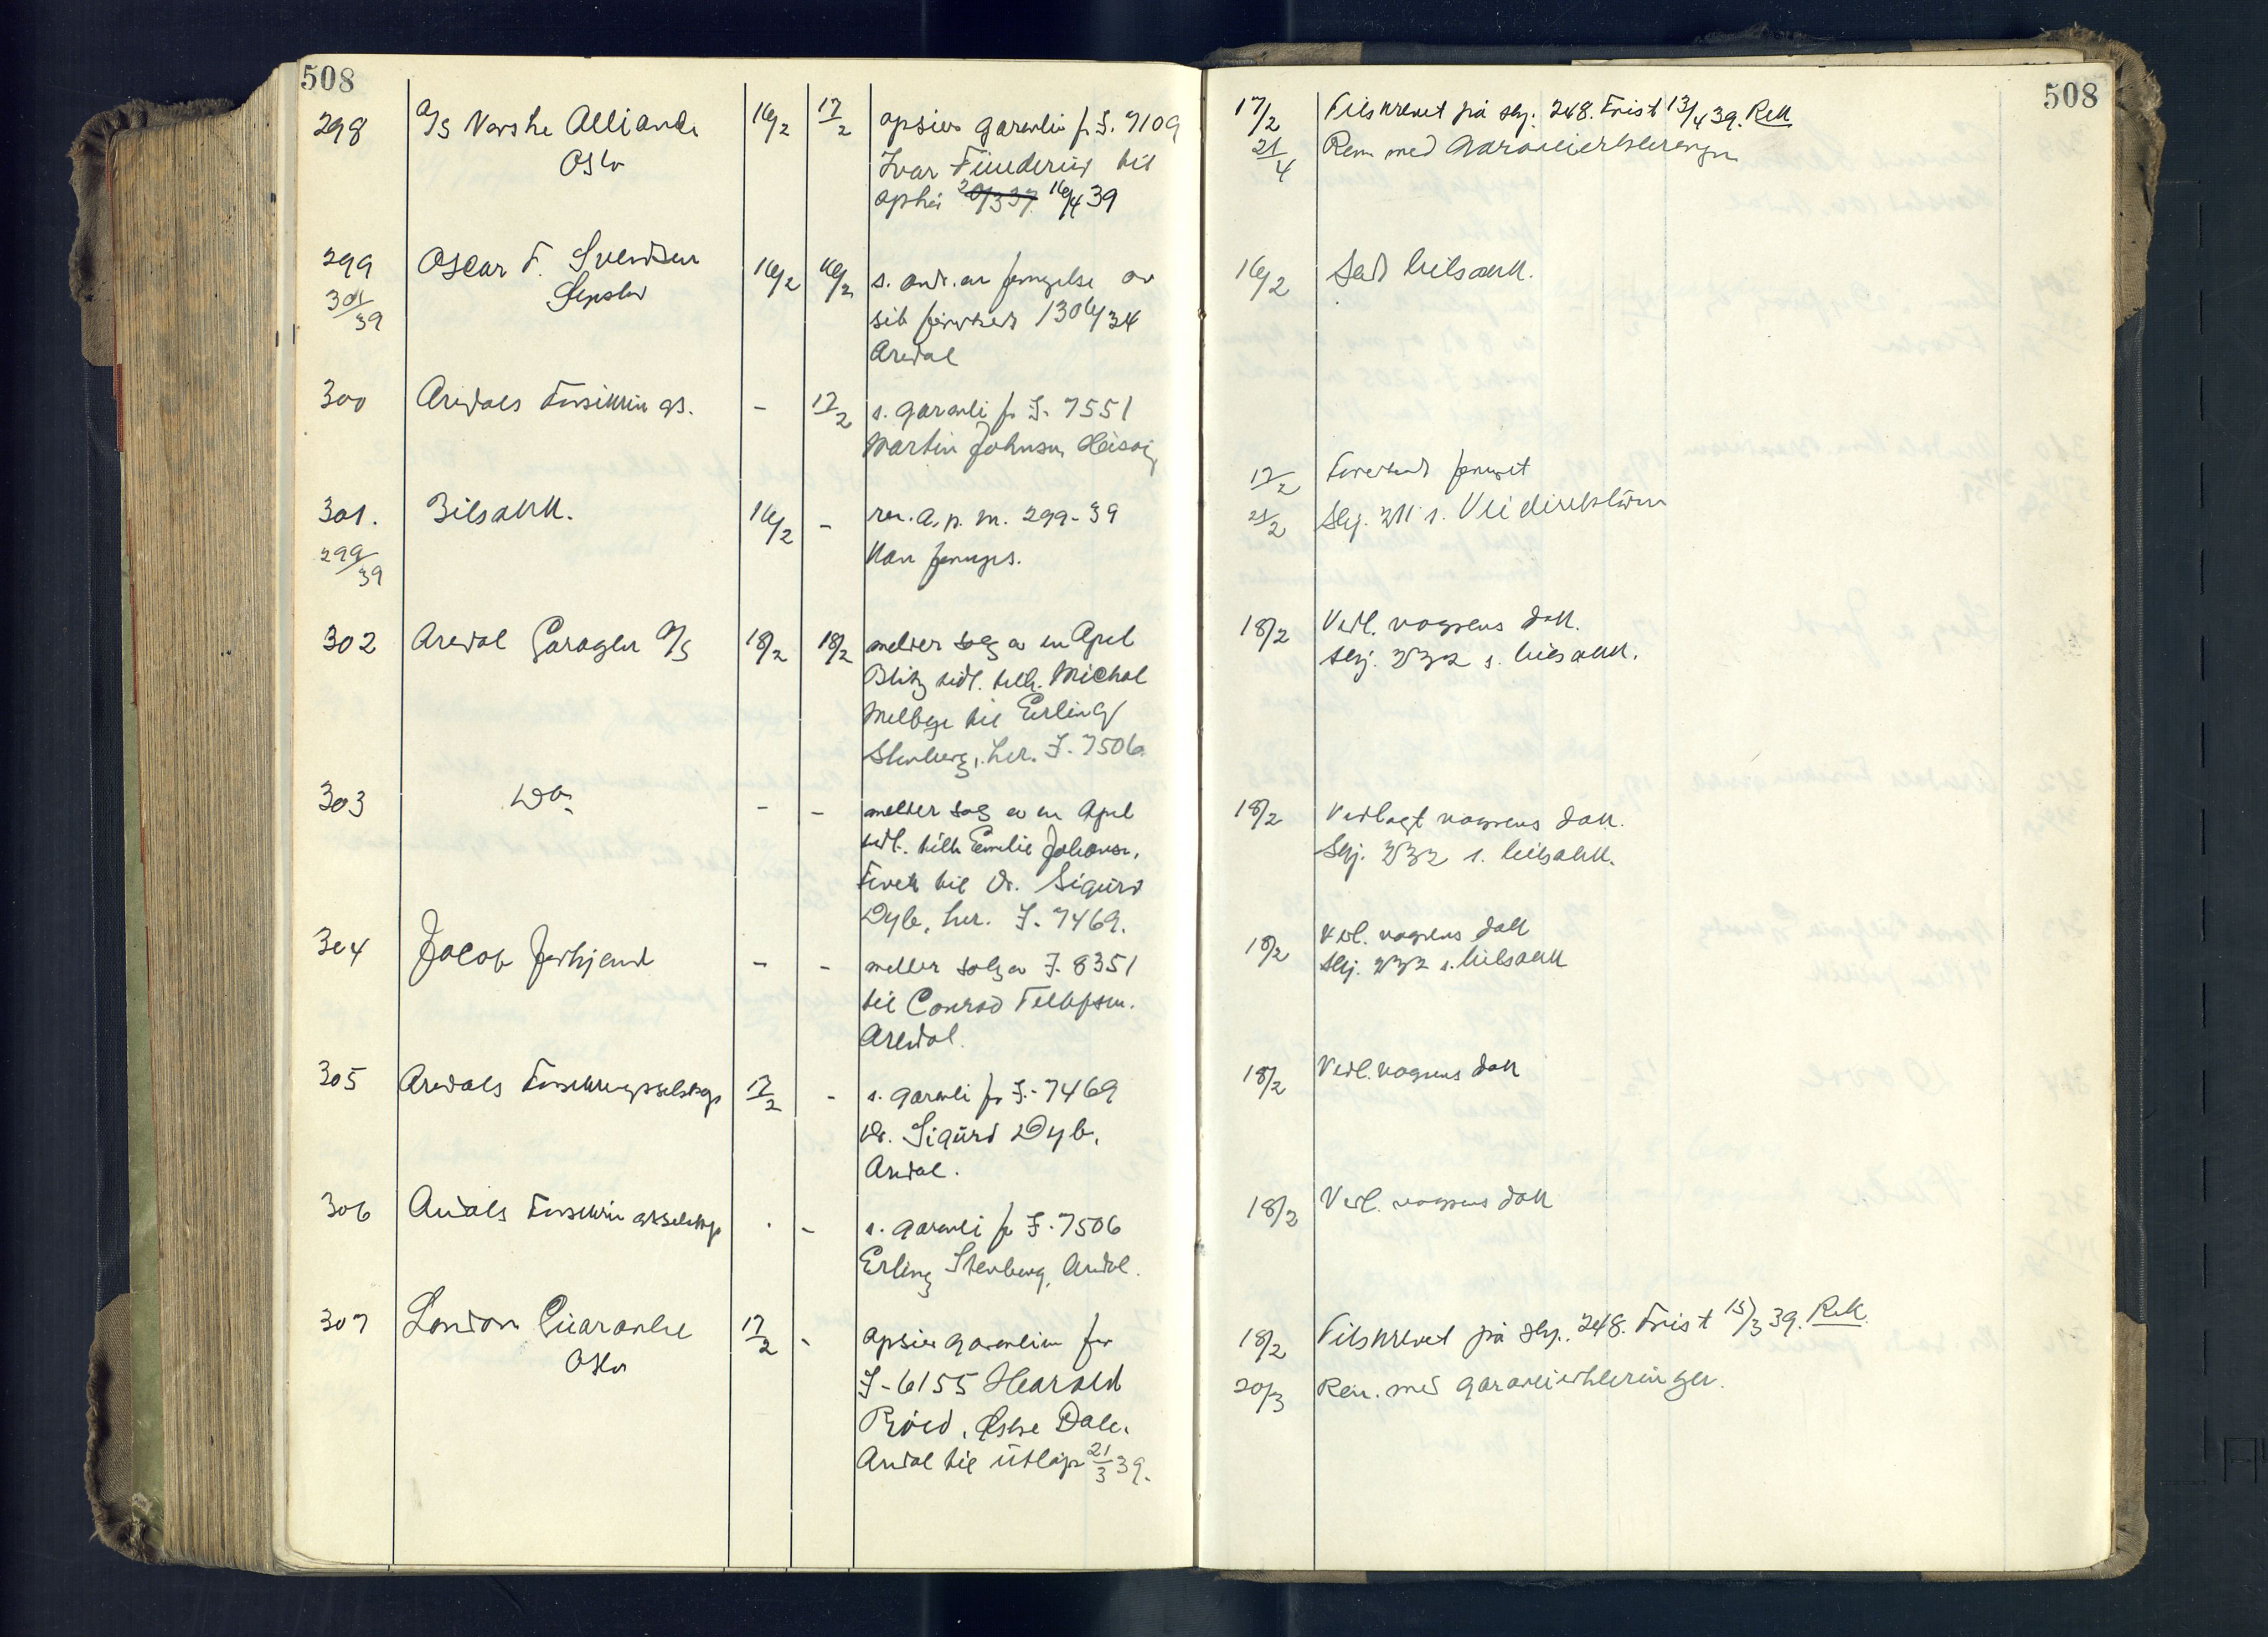 508
298 A/S Norske Alliance 16/2 17/2 opsier garanti f. I. 7109
Oslo Ivar Finderud til
ophør 20/3 37 16/4 39
299 Oscar F. Svendsen 16/2 16/2 s. om. en fornyelse av
301/39 sit førerbevis 1306/34
Arendal
300 Arendals Forsikringss. - 17/2 s. garanti for I-7551
Martin Johnsen Hisøy
301. Bilsakk. 16/2 - rer. a. p. m. 299-39
299/39 Kan fornyes.
302 Arendal Garager A/S 18/2 18/2 melder salg av en Opel
Blitz tidl. tilh. Michal
til Erling
Stenberg, her. I-7506
303 Do. - - melder salg av en Opel
tidl. tilh. Emilie Johansen,
til Dr. Sigurd
Dyb, her. I-7469.
304 Jacob - - melder salg av I-8351
til Conrad Tellefsen.
Arendal.
305 Arendals Forsikringsselskap 17/2 - s. garanti for I-7469
Dr. Sigurd Dyb,
Arendal.
306 Arendals Forsikringsselskap - - s. garanti for I-7506
Erling Stenberg, Arendal.
307 London Guarantee 17/2 - opsier garantien for
Oslo I-6155 Harald
Røed, Østre Dale.
Arendal til utløp 21/3 39.
508
17/2 Tilskrevet på skj. 248. Frist 13/4 39. Rek
21/4 Ren. med garantierklæringen
16/2 Sedt bilsakk.
17/2 Førerbevis fornyet
21/2 Skj. 211 s. Veidirektøren
18/2 Vedl. vognens dok.
Skj. 232 s. bilsakk.
18/2 Vedlagt vognens dok.
Skj. 232 s. bilsakk.
18/2 Vedl. vognens dok
Skj. 232 s. bilsakk
18/2 Vedl. vognens dok
18/2 Vedl. vognens dok
18/2 Tilskrevet på skj. 248. Frist 15/3 39. Rek.
20/3 Ren. med garantierklæringen.